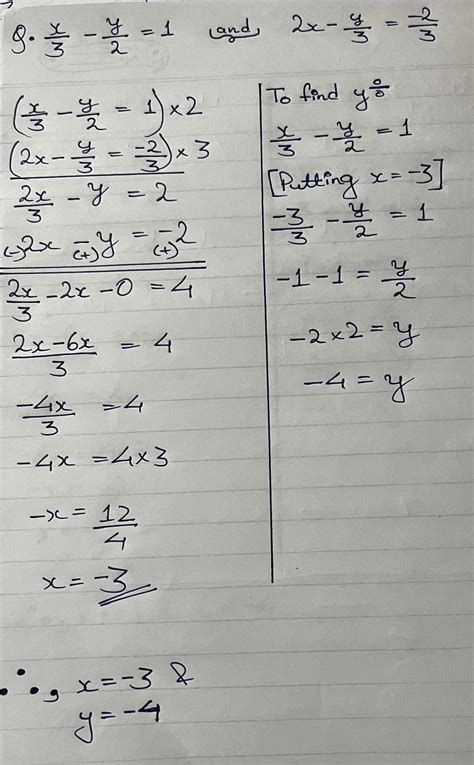 Q. x/3 - y/2 = 1 and 2x - y/3 = -2/3
(x/3 - y/2 = 1) × 2
(2x - y/3 = -2/3) × 3
2x/3 - y = 2
(-)2x (+)-y = (+)-2
2x/3 - 2x - 0 = 4
(2x - 6x)/3 = 4
-4x/3 = 4
-4x = 4×3
-x = 12/4
x = -3
To find y%
x/3 - y/2 = 1
[Putting x = -3]
-3/3 - y/2 = 1
-1 - 1 = y/2
-2×2 = y
-4 = y
∴, x = -3 &
y = -4